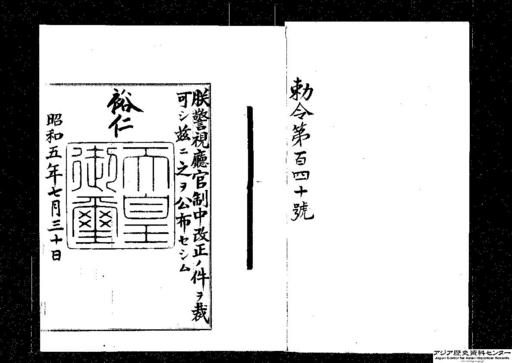 勅令第百四十號
朕警視廳官制中改正ノ件ヲ裁
可シ茲ニ之ヲ公布セシム
裕仁
天皇
御璽
昭和五年七月三十日
アジア歴史資料センター
Japan Center for Asian Historical Records